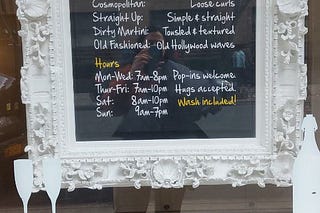 Cosmopolitan: Loose curls
Straight Up: Simple & straight
Dirty Martini: Tousled & textured
Old Fashioned: Old Hollywood waves
Hours
Mon-Wed: 7am-8pm Pop-ins welcome.
Thur-Fri: 7am-10pm Hugs accepted.
Sat: 8am-10pm Wash included!
Sun: 9am-7pm